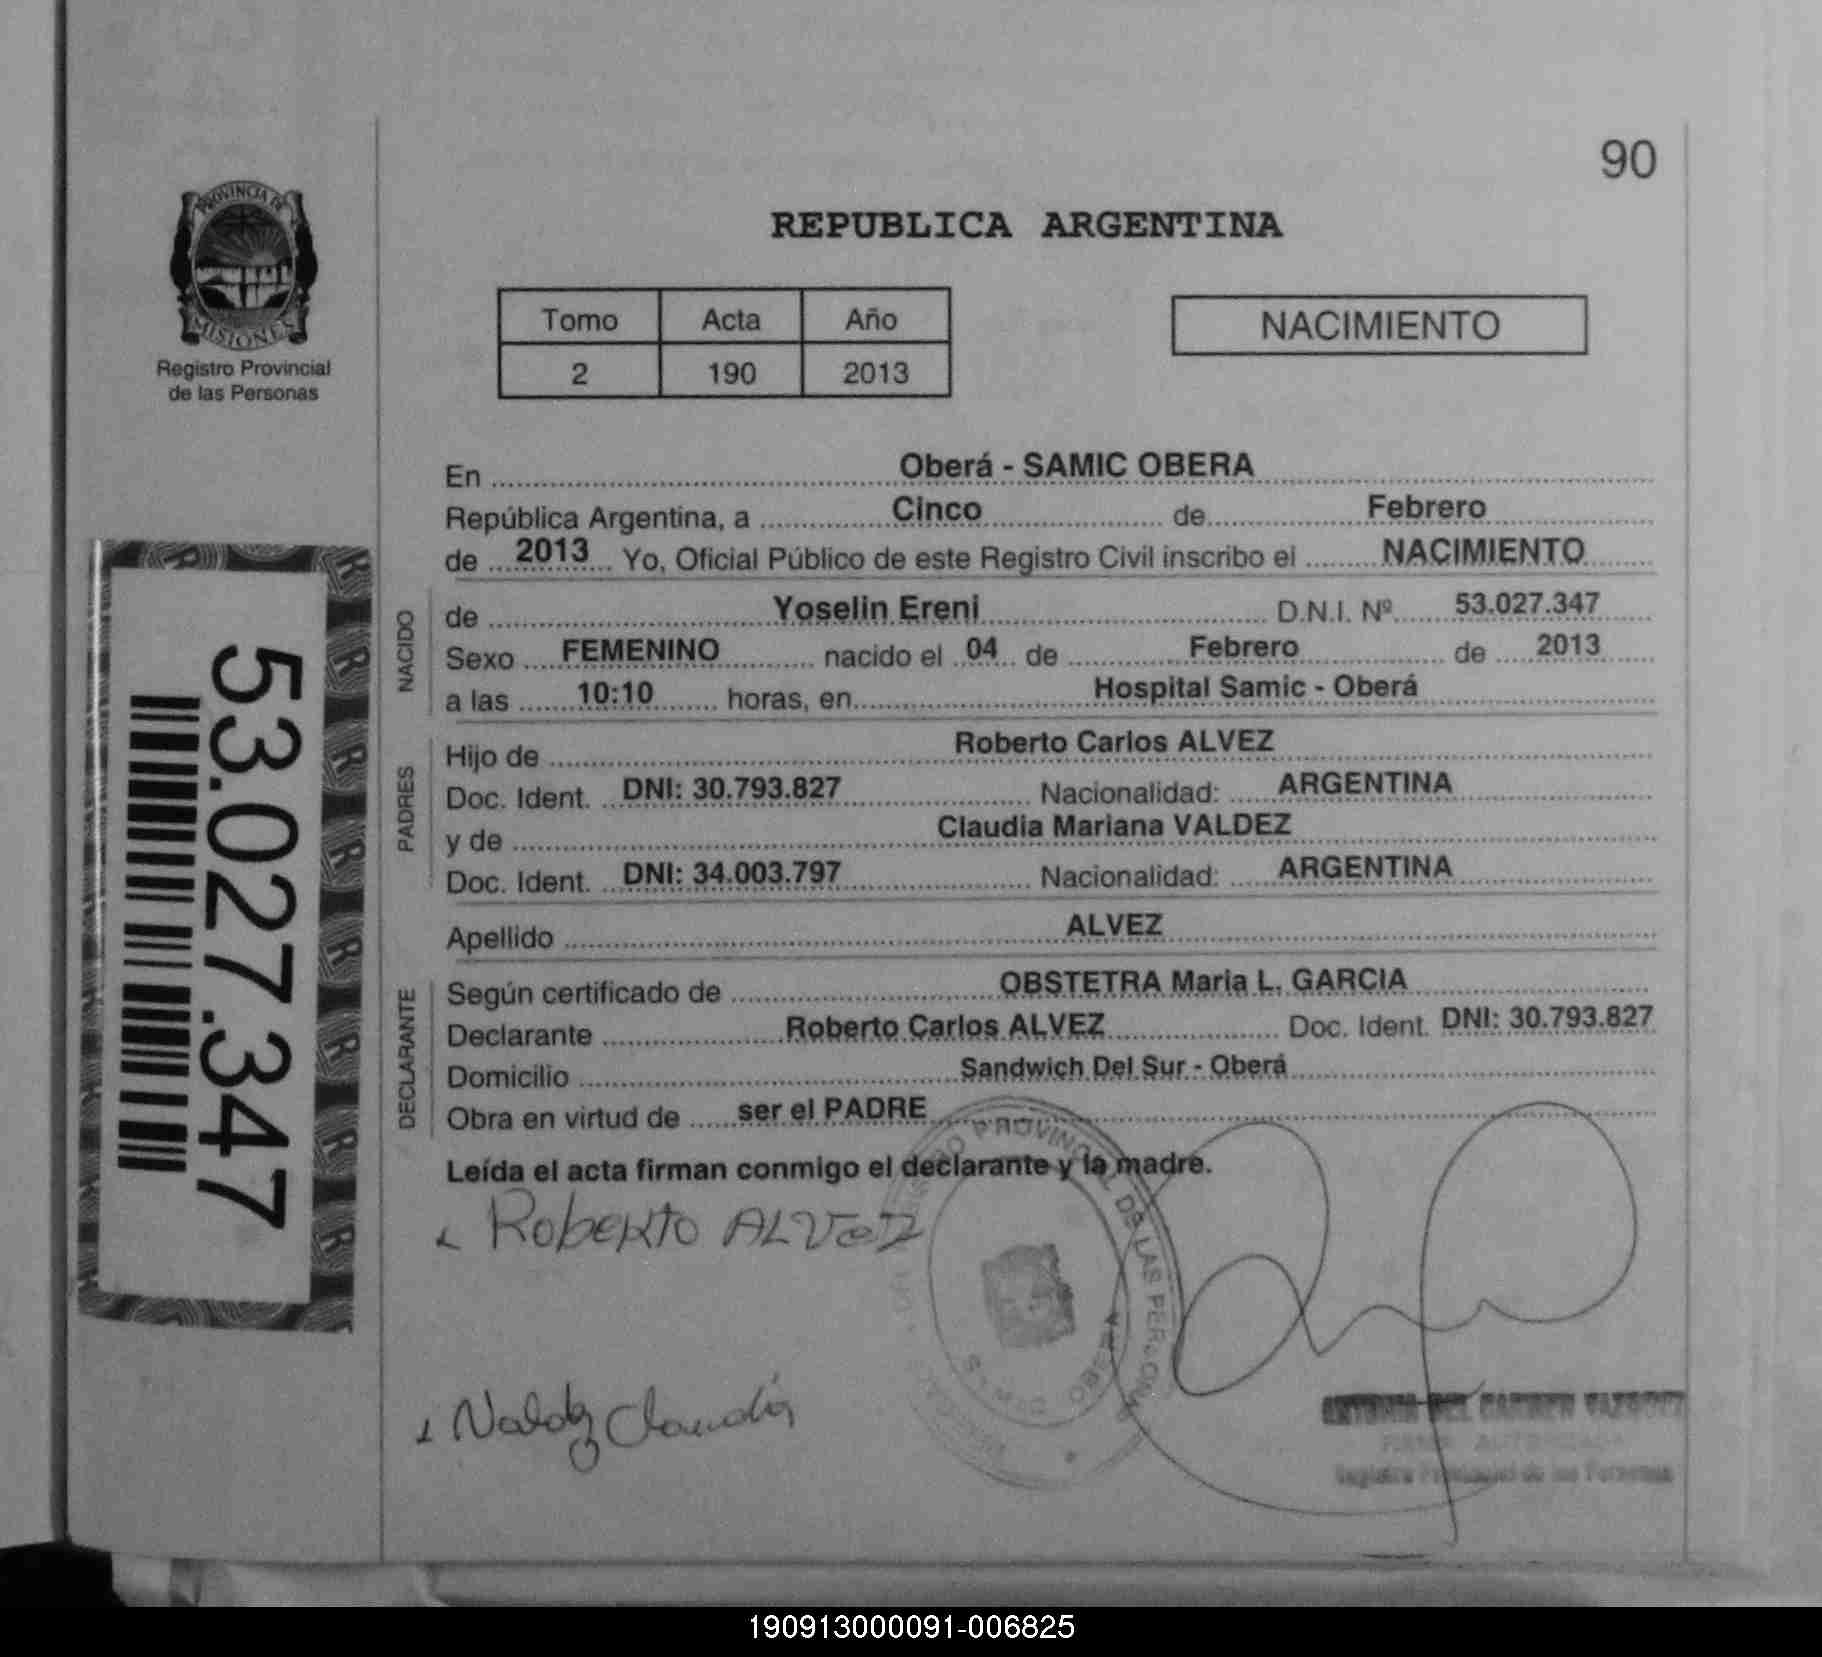 90
PROVINCIA DE
MISIONES
Registro Provincial
de las Personas
REPUBLICA ARGENTINA
Tomo Acta Año
2 190 2013
NACIMIENTO
En Oberá - SAMIC OBERA
República Argentina, a Cinco de Febrero
de 2013 Yo, Oficial Público de este Registro Civil inscribo el NACIMIENTO
NACIDO
de Yoselin Ereni D.N.I. Nº 53.027.347
Sexo FEMENINO nacido el 04 de Febrero de 2013
a las 10:10 horas, en Hospital Samic - Oberá
PADRES
Hijo de Roberto Carlos ALVEZ
Doc. Ident. DNI: 30.793.827 Nacionalidad: ARGENTINA
y de Claudia Mariana VALDEZ
Doc. Ident. DNI: 34.003.797 Nacionalidad: ARGENTINA
Apellido ALVEZ
DECLARANTE
Según certificado de OBSTETRA Maria L. GARCIA
Declarante Roberto Carlos ALVEZ Doc. Ident. DNI: 30.793.827
Domicilio Sandwich Del Sur - Oberá
Obra en virtud de ser el PADRE
Leída el acta firman conmigo el declarante y la madre.
Roberto ALVEZ
PROVINCIAL DE LAS PERSONAS
OBERA
Claudia
DEL CARMEN
Registro Provincial de las Personas
53.027.347
190913000091-006825